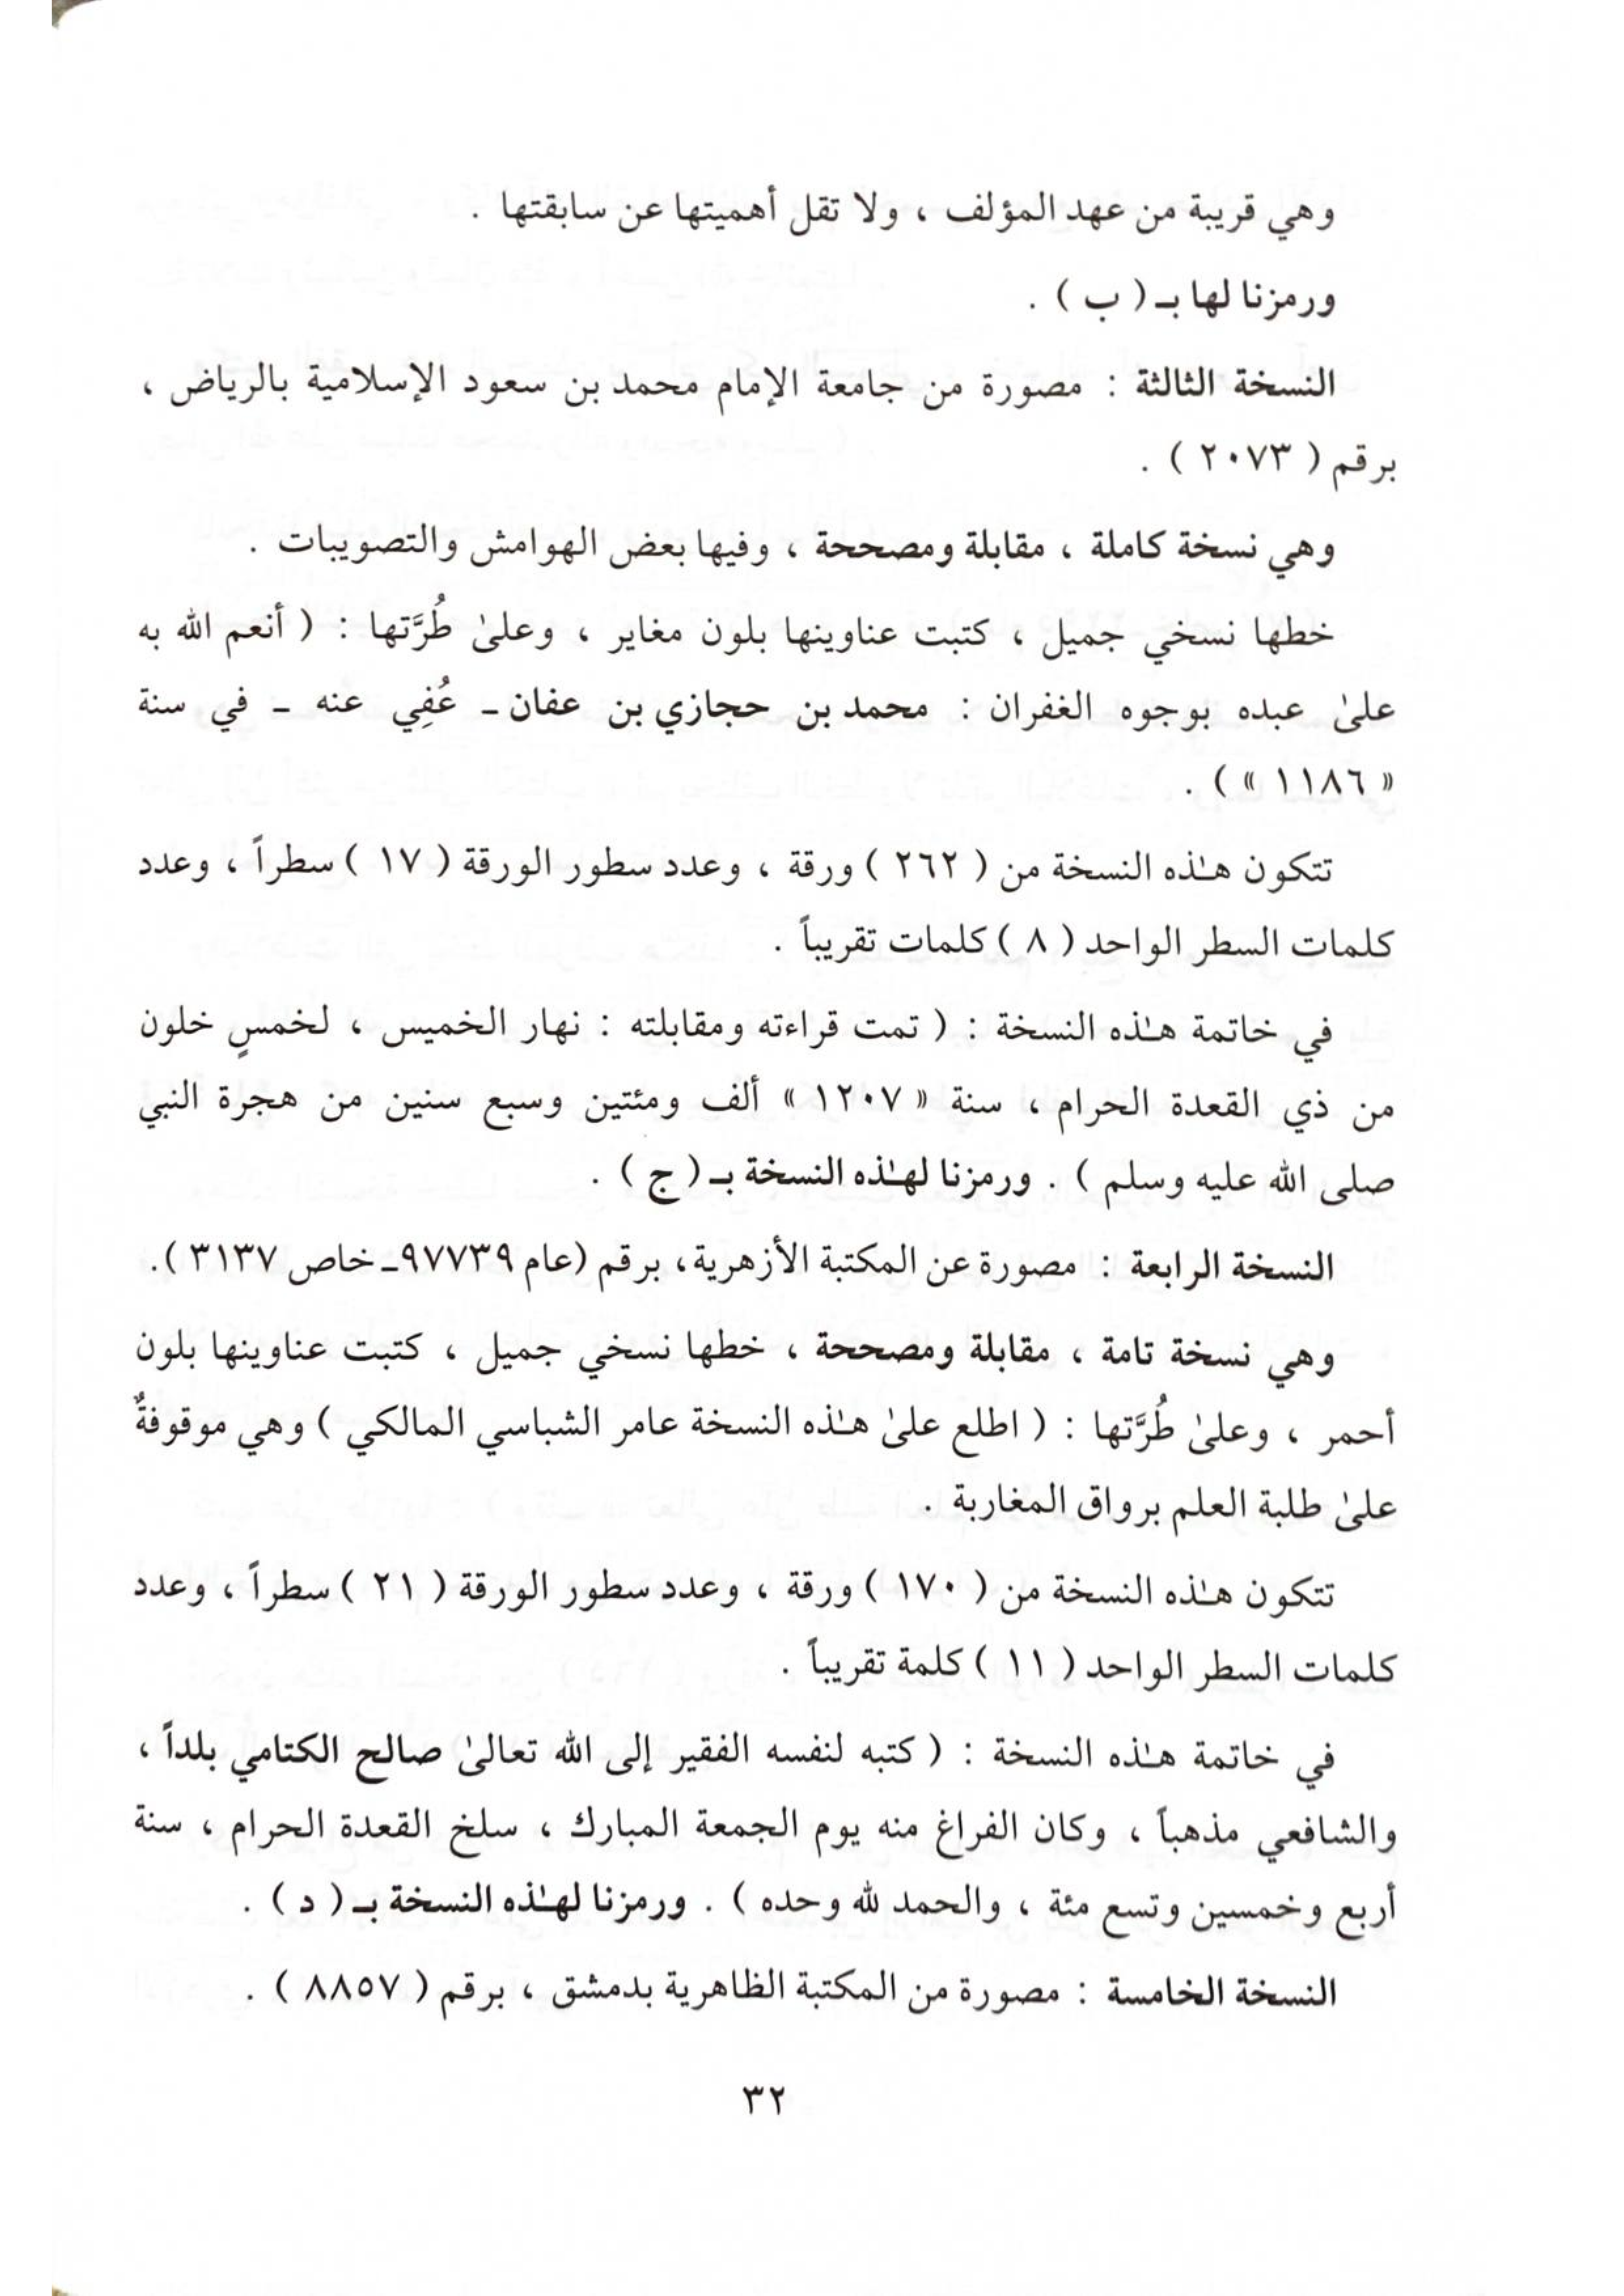 وهي قريبة من عهد المؤلف ، ولا تقل أهميتها عن سابقتها .
ورمزنا لها بـ ( ب ) .
النسخة الثالثة : مصورة من جامعة الإمام محمد بن سعود الإسلامية بالرياض ،
برقم ( ٢٠٧٣ ) .
وهي نسخة كاملة ، مقابلة ومصححة ، وفيها بعض الهوامش والتصويبات .
خطها نسخي جميل ، كتبت عناوينها بلون مغاير ، وعلىٰ طُرَّتها : ( أنعم الله به
علىٰ عبده بوجوه الغفران : محمد بن حجازي بن عفان ـ عُفِي عنه ـ في سنة
« ١١٨٦ » ) .
تتكون هـٰذه النسخة من ( ٢٦٢ ) ورقة ، وعدد سطور الورقة ( ١٧ ) سطراً ، وعدد
كلمات السطر الواحد ( ٨ ) كلمات تقريباً .
في خاتمة هـٰذه النسخة : ( تمت قراءته ومقابلته : نهار الخميس ، لخمسٍ خلون
من ذي القعدة الحرام ، سنة « ١٢٠٧ » ألف ومئتين وسبع سنين من هجرة النبي
صلى الله عليه وسلم ) . ورمزنا لهـٰذه النسخة بـ ( ج ) .
النسخة الرابعة : مصورة عن المكتبة الأزهرية، برقم (عام ٩٧٧٣٩ـ خاص ٣١٣٧ ).
وهي نسخة تامة ، مقابلة ومصححة ، خطها نسخي جميل ، كتبت عناوينها بلون
أحمر ، وعلىٰ طُرَّتها : ( اطلع علىٰ هـٰذه النسخة عامر الشباسي المالكي ) وهي موقوفةٌ
علىٰ طلبة العلم برواق المغاربة .
تتكون هـٰذه النسخة من ( ١٧٠ ) ورقة ، وعدد سطور الورقة ( ٢١ ) سطراً ، وعدد
كلمات السطر الواحد ( ١١ ) كلمة تقريباً .
في خاتمة هـٰذه النسخة : ( كتبه لنفسه الفقير إلى الله تعالىٰ صالح الكتامي بلداً ،
والشافعي مذهباً ، وكان الفراغ منه يوم الجمعة المبارك ، سلخ القعدة الحرام ، سنة
أربع وخمسين وتسع مئة ، والحمد لله وحده ) . ورمزنا لهـٰذه النسخة بـ ( د ) .
النسخة الخامسة : مصورة من المكتبة الظاهرية بدمشق ، برقم ( ٨٨٥٧ ) .
٣٢